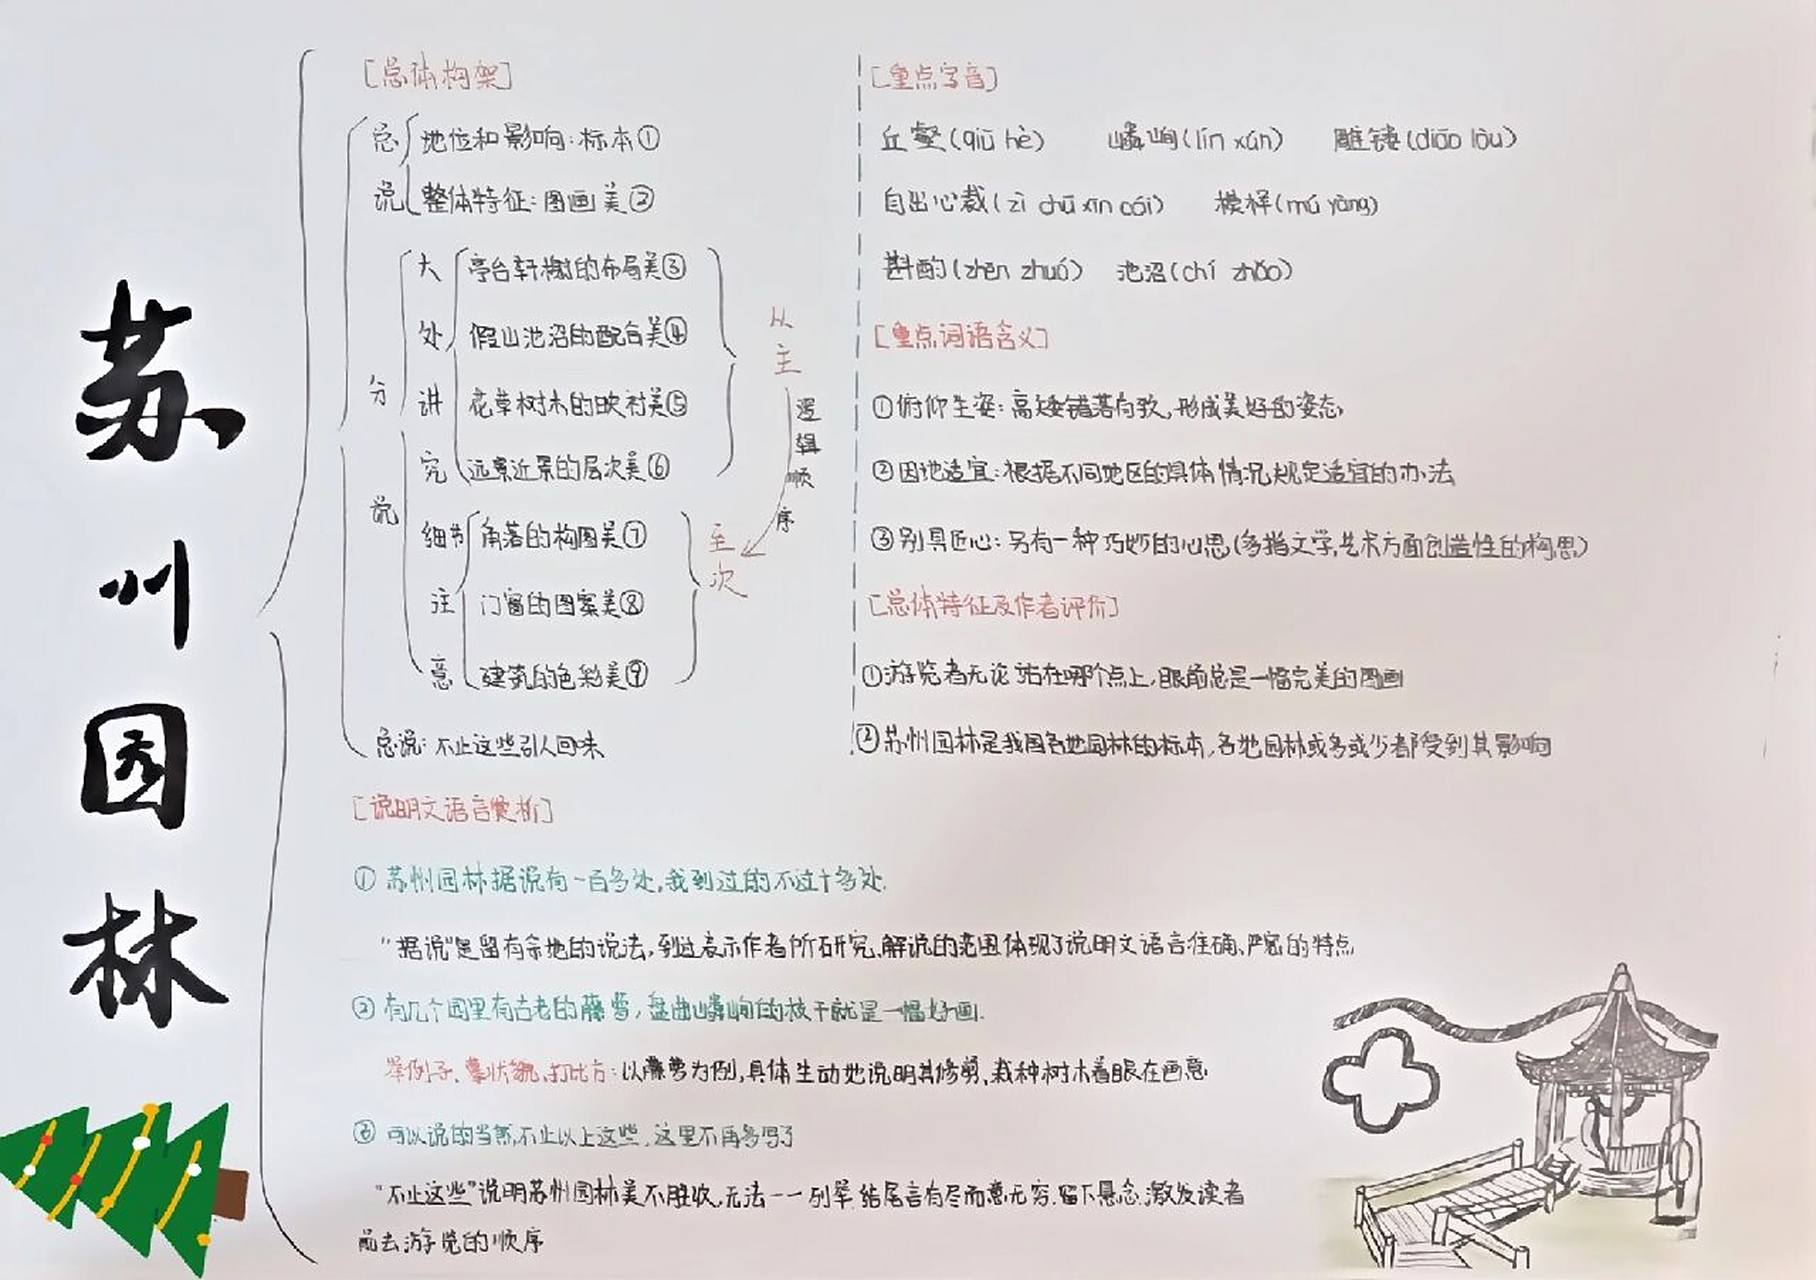 苏州园林
[总体构架]
总说
地位和影响:标本①
整体特征:图画美②
分说
大处讲究
亭台轩榭的布局美③
假山池沼的配合美④
花草树木的映衬美⑤
远景近景的层次美⑥
细节注意
角落的构图美⑦
门窗的图案美⑧
建筑的色彩美⑨
从主
至次
逻辑顺序
总说:不止这些引人回味
[重点字音]
丘壑(qiū hè) 嶙峋(lín xún) 雕镂(diāo lòu)
自出心裁(zì chū xīn cái) 模样(mú yàng)
斟酌(zhēn zhuó) 池沼(chí zhǎo)
[重点词语含义]
①俯仰生姿:高矮错落有致,形成美好的姿态
②因地适宜:根据不同地区的具体情况规定适宜的办法
③别具匠心:另有一种巧妙的心思(多指文学,艺术方面创造性的构思)
[总体特征及作者评价]
①游览者无论站在哪个点上,眼前总是一幅完美的图画
②苏州园林是我国各地园林的标本,各地园林或多或少都受到其影响
[说明文语言赏析]
① 苏州园林据说有一百多处,我到过的不过十多处.
"据说"是留有余地的说法,到过表示作者所研究、解说的范围体现了说明文语言准确、严密的特点
② 有几个园里有古老的藤萝,盘曲嶙峋的枝干就是一幅好画.
举例子、摹状貌、打比方:以藤萝为例,具体生动地说明其修剪、栽种树木着眼在画意
③ 可以说的当然不止以上这些,这里不再多写了
"不止这些"说明苏州园林美不胜收,无法一一列举.结尾言有尽而意无穷.留下悬念,激发读者
前去游览的顺序